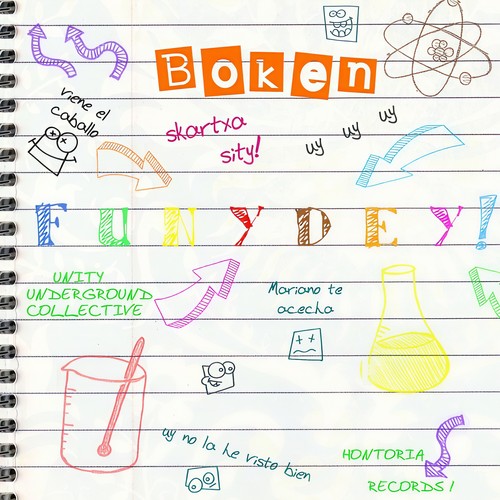 Boken
viene el
caballo
skartxa
sity!
uy uy uy
FUNYDEY!
UNITY
UNDERGROUND
COLLECTIVE
Mariano te
acecha
uy no la he visto bien
HONTORIA
RECORDS!